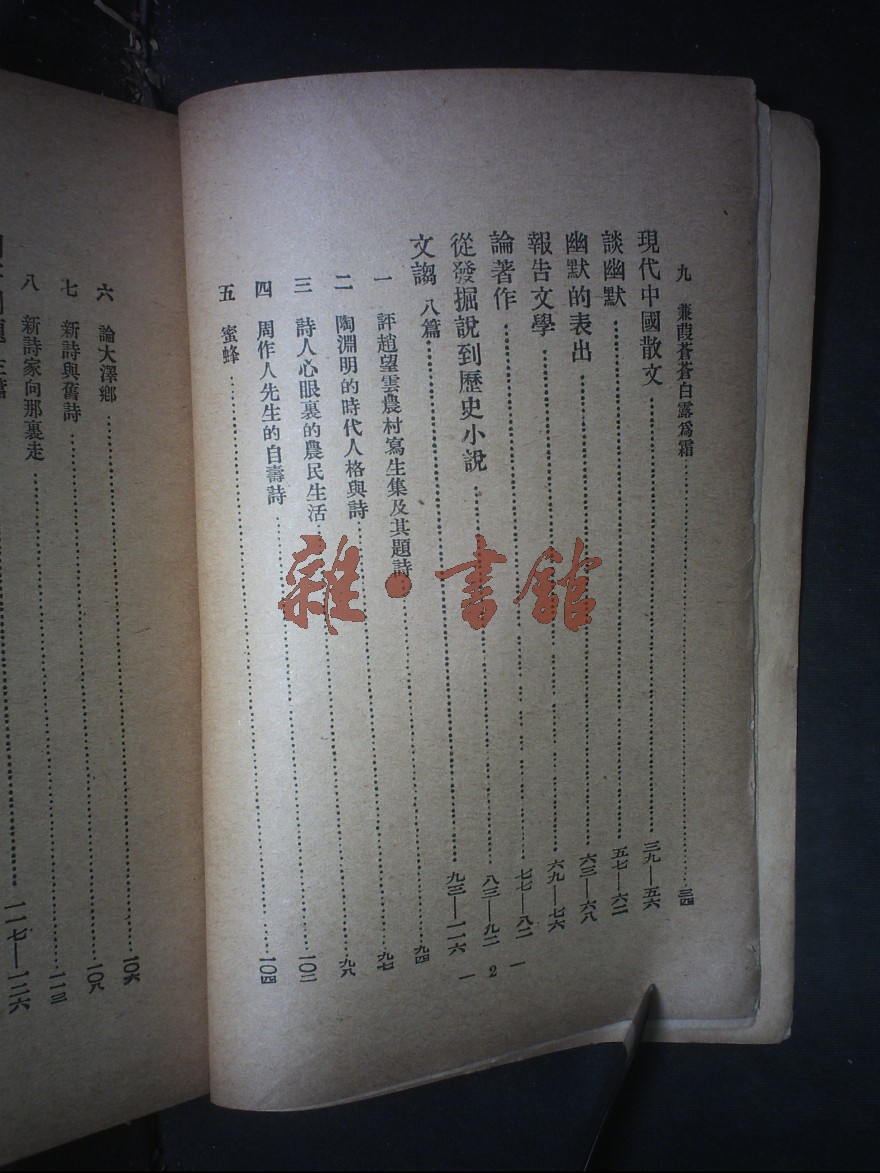 九　蒹葭蒼蒼白露爲霜…………三四
現代中國散文…………三九—五六
談幽默…………五七—六二
幽默的表出…………六三—六八
報告文學…………六九—七六
論著作…………七七—八二
從發掘說到歷史小說…………八三—九二
文謅　八篇…………九三—一一六
一　評趙望雲農村寫生集及其題詩…………九四
二　陶淵明的時代人格與詩…………九七
三　詩人心眼裏的農民生活…………九八
四　周作人先生的自壽詩…………一〇二
五　蜜蜂…………一〇四
— 2 —
六　論大澤鄉…………一〇六
七　新詩與舊詩…………一〇八
八　新詩家向那裏走…………一一三
…………一一七—一二六
雜·書館